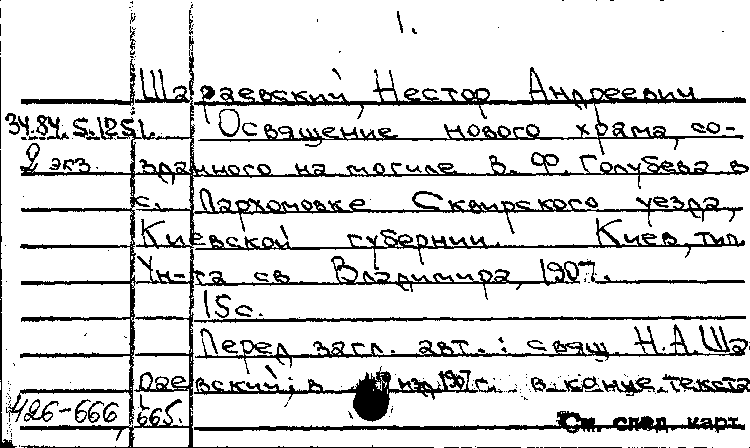 1.
Шараевский, Нестор Андреевич
34.84.5.1251. Освящение нового храма, со-
2 экз. зданного на могиле В. Ф. Голубева в
с. Пархомовке Сквирского уезда,
Киевской губернии. Киев, тип.
Ун-та св. Владимира, 1907.
15с.
Перед загл. авт.: свящ. Н.А.Ша-
раевский; в изд. 1907 г. в конце текста
426-666, 665.
См. след. карт.